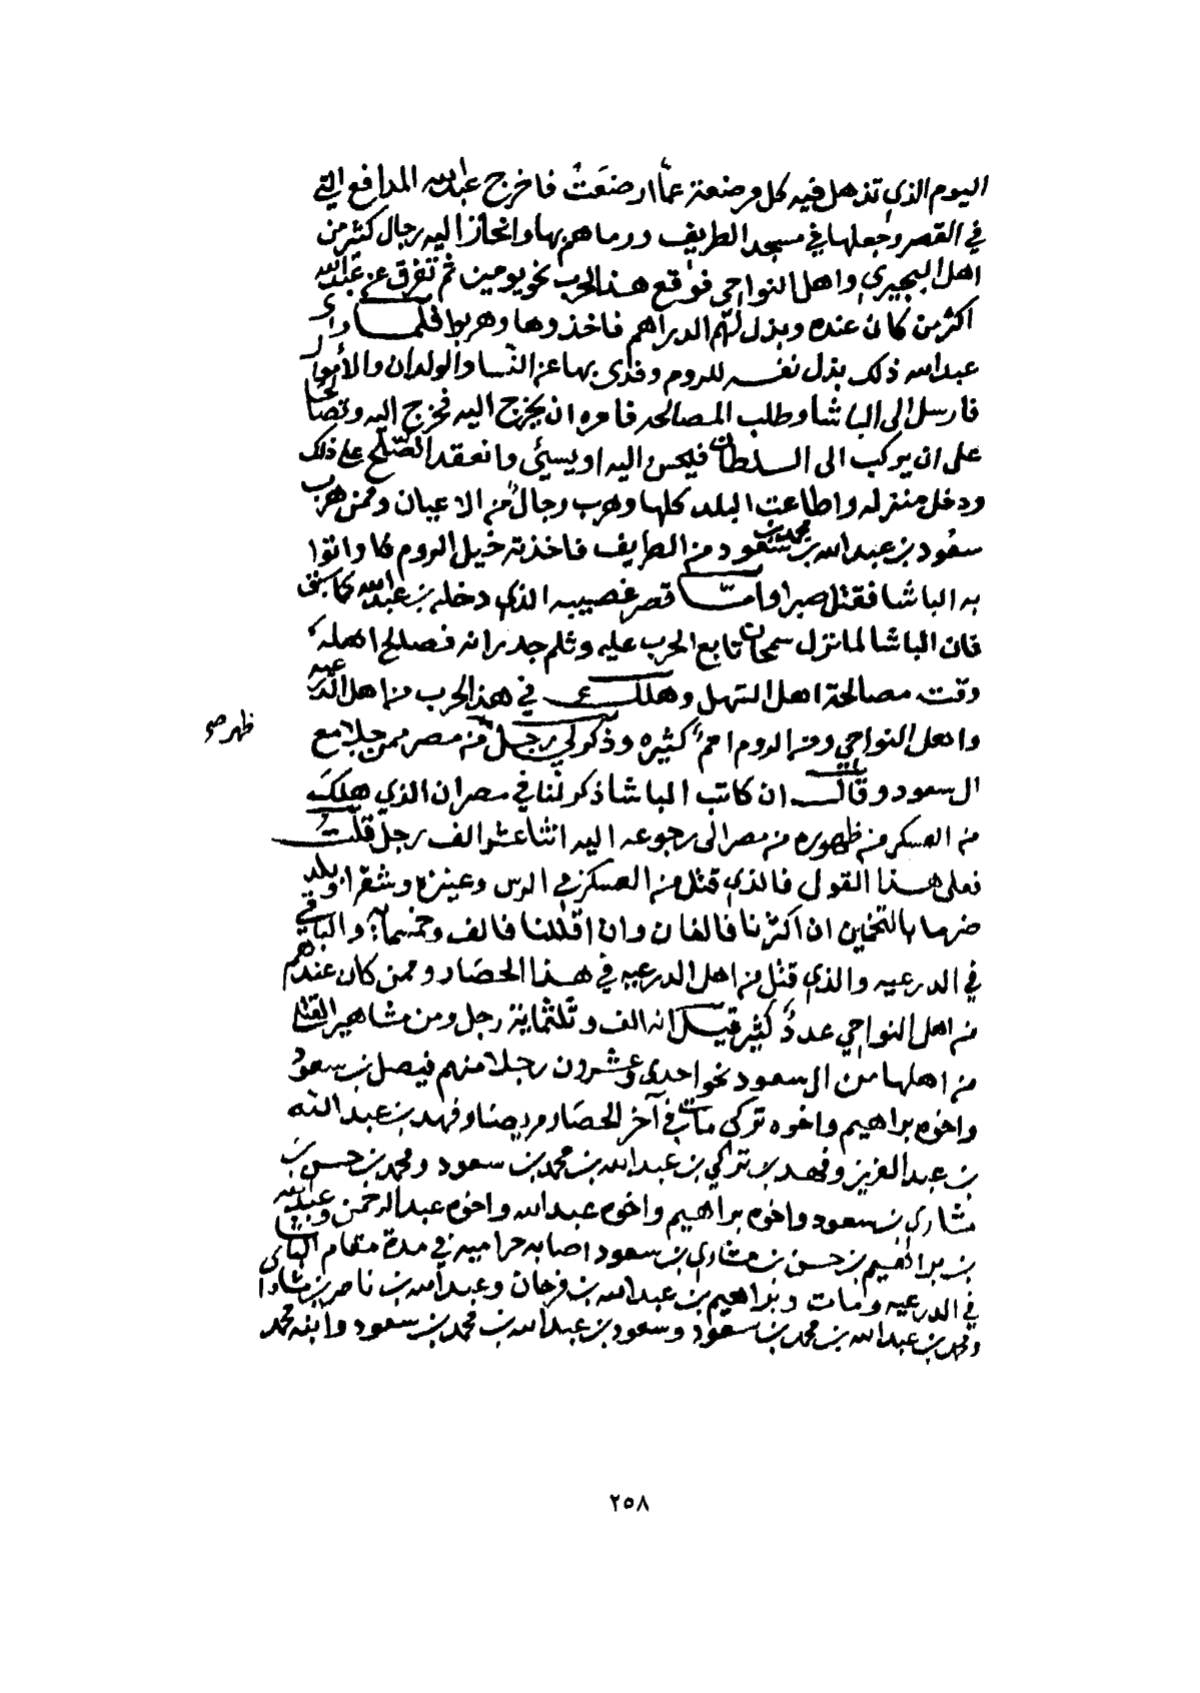 اليوم الذي تذهل فيه كل مرضعة عمّا ارضعَتْ فاخرج عبدالله المدافع التي
في القصر وجعلها في مسجد الطريف ورماهم بها وانحاز اليه رجال كثير من
اهل البجيري واهل النواحي فوقع هذا الحرب نحو يومين ثم تفرق عن عبدالله
اكثر من كان عنده وبذل لهم الدراهم فاخذوها وهربوا فلما راى
عبدالله ذلك بذل نفسه للروم وفدى بها عن النسا والولدان والأموال
فارسل الى الباشا وطلب المصالحه فامره ان يخرج اليه فخرج اليه وتصالحا
على ان يركب الى السلطان فيحسن اليه او يسئ وانعقد الصّلح على ذلك
ودخل منزله واطاعت البلد كلها وهرب رجالٌ من الاعيان وممن هرب
سعُود بن عبدالله بن محمد بن سعود من الطريف فاخذته خيل الروم فاوانوا
به الباشا فقتل صبرا وامّا قصر غصيبه الذي دخله بن عبدالله كما سبق
فان الباشا لما نزل سمحان تابع الحرب عليه وثلم جدرانه فصالح اهله
وقت مصالحة اهل السهل وهلك في هذا الحرب من اهل الدرعيه
واهل النواحي ومن الروم اممٌ كثيره وذكر لي رجل من مصر ممن جلا مع
ال سعود وقال ان كاتب الباشا ذكر لنا في مصر ان الذي هلَكَ
من العسكر من ظهوره من مصر الى رجوعه اليه اثنا عشر الف رجل قلتُ
ظهر صح
فعلى هذا القول فالذي قتل من العسكر في الرس وعنيزه وشقرا وبلد
ضرما بالتخمين ان اكثرنا فالفان وان اقللنا فالف وخمسماية والباقي
في الدرعيه والذي قتل من اهل الدرعيه في هذا الحصَار وممن كان عندهم
من اهل النواحي عددٌ كثير قيل انه الف وثلثماية رجل ومن مشاهير القتلى
من اهلها من ال سعود نحو احدى وعشرون رجلا منهم فيصل بن سعود
واخوه براهيم واخوه تركي مات في آخر الحصَار مريضا وفهد بن عبدالله
بن عبدالعزيز وفهد بن تركي بن عبدالله بن محمد بن سعود ومحمد بن حسن بن
مشاري بن سعود واخوه براهيم واخوه عبدالله واخوه عبدالرحمن وعبدالله
بن براهيم بن حسن بن مشاري بن سعود اصابه حراميه في مدة مقام الباشا
في الدرعيه ومات وبراهيم بن عبدالله بن فرحان وعبدالله بن ناصر بن مشاري
ومحمد بن عبدالله بن محمد بن سعود وسعود بن عبدالله بن محمد بن سعود وابنه محمد
٢٥٨